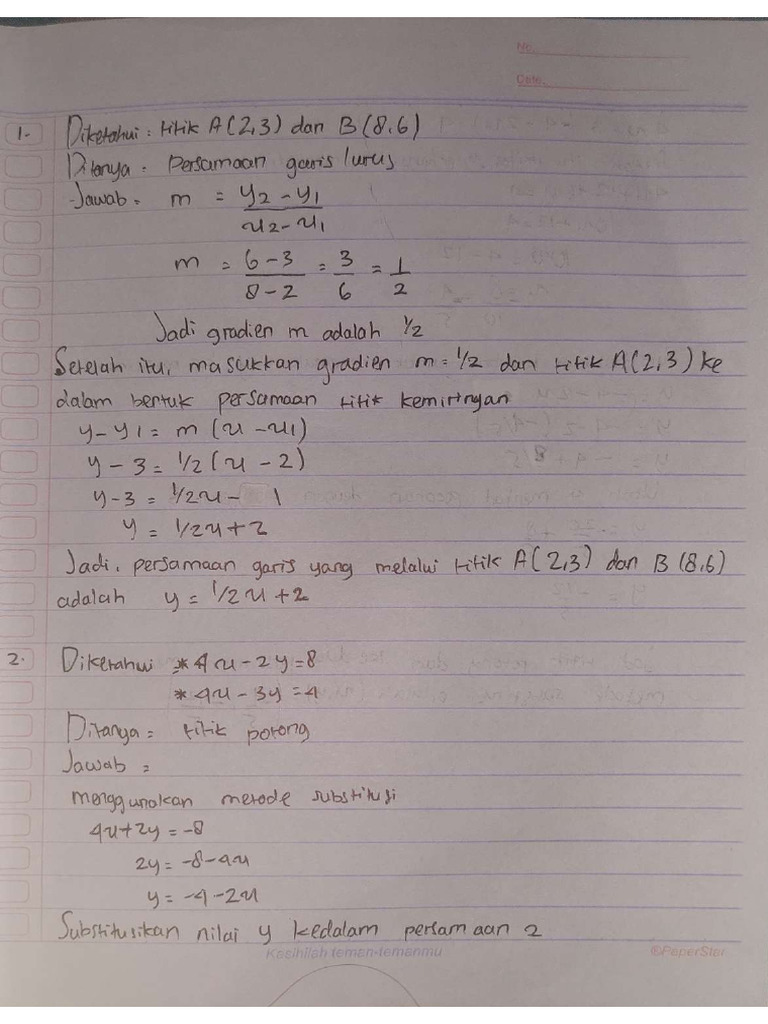 No.
Date.
1. Diketahui : titik A(2,3) dan B(8,6)
Ditanya : Persamaan garis lurus
Jawab : m = y2 - y1 / x2 - x1
m = 6 - 3 / 8 - 2 = 3 / 6 = 1 / 2
Jadi gradien m adalah 1/2
Setelah itu, masukkan gradien m = 1/2 dan titik A(2,3) ke
dalam bentuk persamaan titik kemiringan
y - y1 = m (x - x1)
y - 3 = 1/2 (x - 2)
y - 3 = 1/2x - 1
y = 1/2x + 2
Jadi, persamaan garis yang melalui titik A(2,3) dan B(8,6)
adalah y = 1/2x + 2
2. Diketahui * 4x - 2y = 8
* 4x - 3y = 4
Ditanya = titik potong
Jawab =
menggunakan metode substitusi
4x + 2y = -8
2y = -8 - 4x
y = -4 - 2x
Substitusikan nilai y kedalam persamaan 2
Kasihilah teman-temanmu
©PaperStar